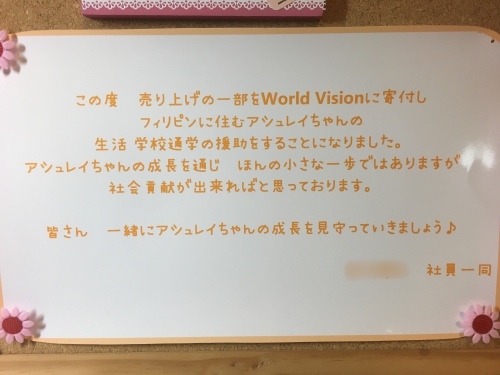 この度　売り上げの一部をWorld Visionに寄付し
フィリピンに住むアシュレイちゃんの
生活 学校通学の援助をすることになりました。
アシュレイちゃんの成長を通じ　ほんの小さな一歩ではありますが
社会貢献が出来ればと思っております。
皆さん　一緒にアシュレイちゃんの成長を見守っていきましょう♪
社員一同